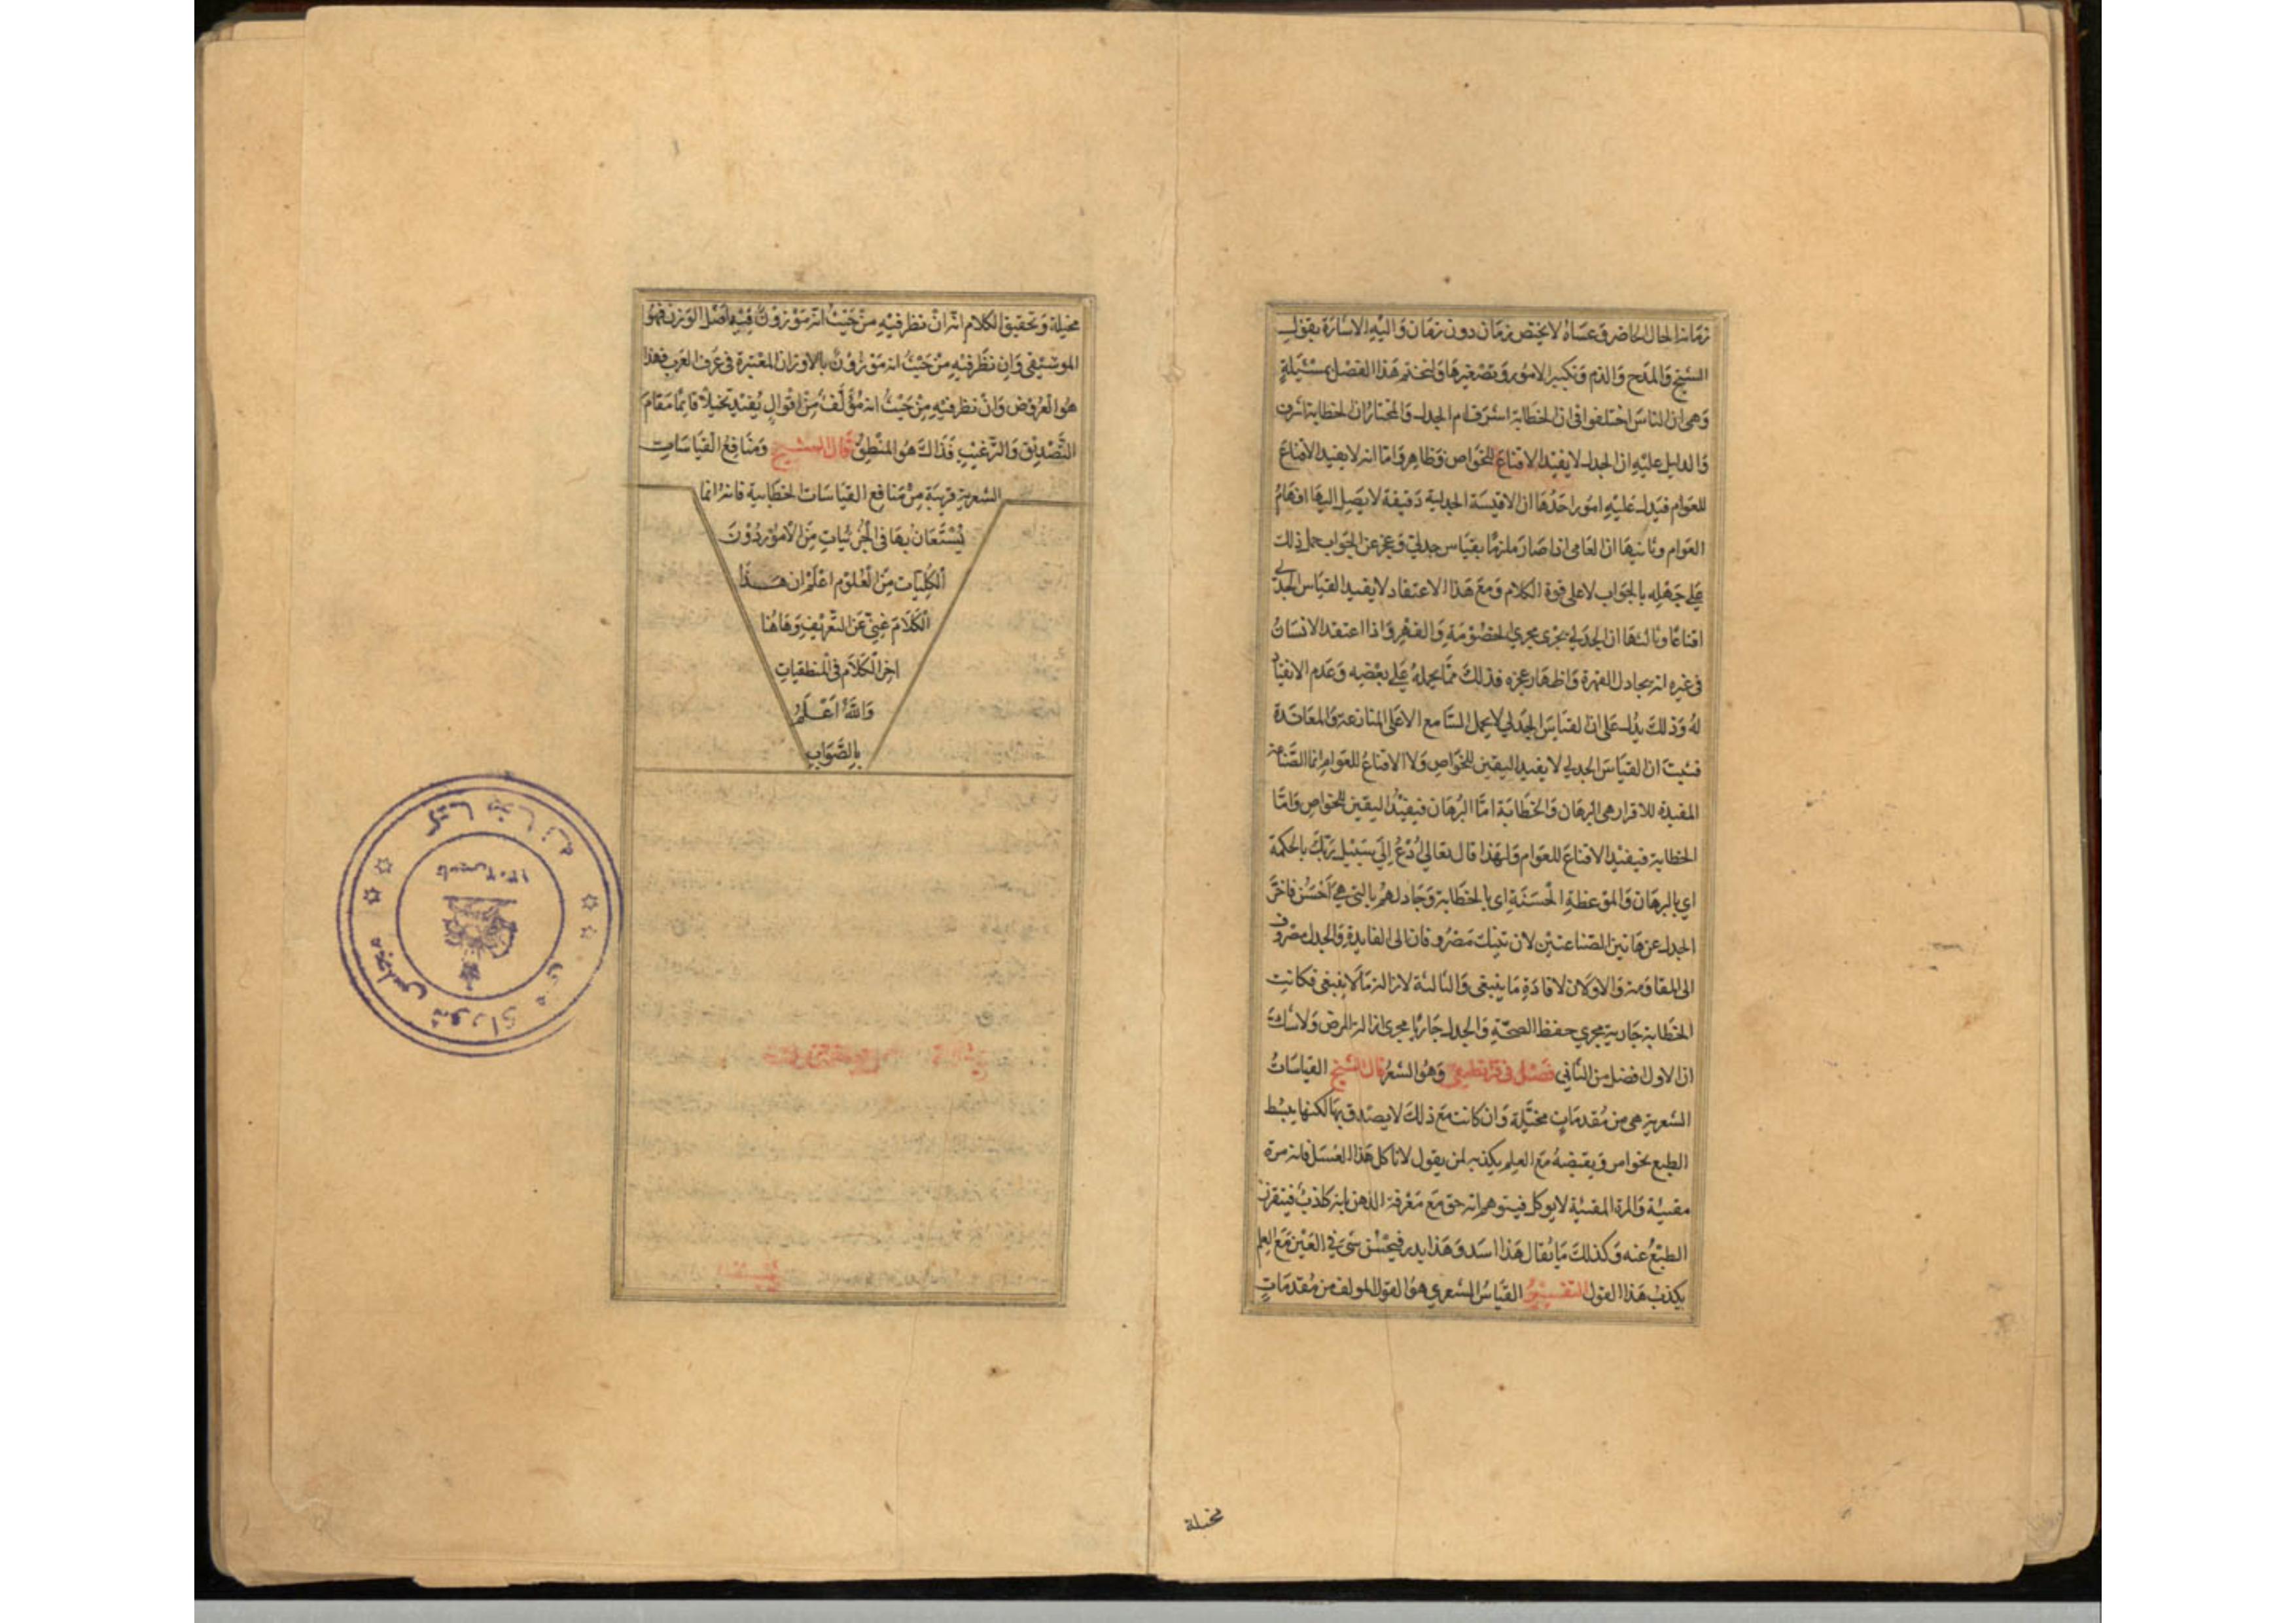 زماننا الحال الحاضر وعساه لا يختص بزمان دون زمان واليه الاشارة بقول
الشيخ والمدح والذم وتكبير الامور وتصغيرها ولنختم هذا الفصل بمسئيلةٍ
وهى ان الناس اختلفوا فى ان الخطابة اشرف ام الجدل والمختار ان الخطابة اشرف
والدليل عليه ان الجدل لا يفيد الاقناع للخواص وظاهر واما انه لا يفيد الاقناع
للعوام فيدل عليه امور احدها ان الاقيسة الجدلية دقيقة لا يصل اليها افهام
العوام وثانيها ان العامى اذا صار ملزمًا بقياس جدلى وعجز عن الجواب حمل ذلك
على جهله بالجواب لا على قوة الكلام ومع هذا الاعتقاد لا يفيد القياس الجدلى
اقناعًا وثالثها ان الجدلى يجرى مجرى الخصومة والقهر واذا اعتقد الانسان
فى غيره انه يجادل لقهره واظهار عجزه فذلك مما يحمله على بغضه وعدم الانقياد
له وذلك يدل على ان القياس الجدلي لا يحمل السامع الا على المنازعة والمعاندة
فثبت ان القياس الجدلي لا يفيد اليقين للخواص ولا الاقناع للعوام انما الصناعة
المفيدة للاقرار هى البرهان والخطابة اما البرهان فيفيد اليقين للخواص واما
الخطابة فيفيد الاقناع للعوام ولهذا قال تعالي ادع إلي سبيل ربك بالحكمة
اي بالبرهان والموعظة الحسنة اى بالخطابة وجادلهم بالتى هي احسن فاخر
الجدل عن هاتين الصناعتين لان تينك مصروفان الى الفايدة والجدل مصروف
الى المقاومة والاولان لافادة ما ينبغى والثالثة لازالة ما لا ينبغى فكانت
الخطابة جارية مجري حفظ الصحة والجدل جاريًا مجرى ازالة المرض ولا شك
ان الاول افضل من الثانى فصل فى وهو الشعر قال الشيخ القياسات
الشعرية هى من مقدمات مخيلة وان كانت مع ذلك لا يصدق بها لكنها يبسط
الطبع نحو امر ويقبضه مع العلم بكذبه لمن يقول لا تاكل هذا العسل فانه مرة
مقيئة والمرة المقيئة لا يوكل فيتوهم انه حق مع معرفة الذهن بانه كاذب فيتقزز
الطبع عنه وكذلك ما يقال هذا اسد وهذا بدر فيحسن شي في العين مع العلم
بكذب هذا القول التفسير القياس الشعري هو القول المولف من مقدماتٍ
مخيلة
مخيلة وتحقيق الكلام انه ان نظر فيه من حيث انه موزون فيه اصل الوزن فهو
الموسيقى وان نظر فيه من حيث انه موزون بالاوزان المعتبرة فى عرف العرب فهذا
هو العروض وان نظر فيه من حيث انه مؤلف من اقوال يفيد تخيلًا قائمًا مقام
التصديق والترغيب فذاك هو المنطق قال الشيخ ومنافع القياسات
الشعرية قريبة من منافع القياسات الخطابية فانه انما
يستعان بها فى الجزئيات من الامور دون
الكليات من العلوم اعلم ان هذا
الكلام غني عن التعريف وهاهنا
اخر الكلام فى المنطقيات
والله اعلم
بالصواب
كتابخانه
مجلس شورای ملی
تاسیس ۱۳۰۲